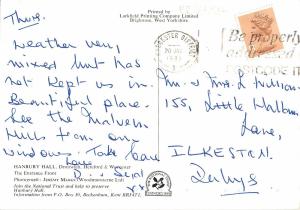 Printed by
Larkfield Printing Company Limited
Brighouse, West Yorkshire
Thurs.
Weather very
mixed but has
not kept us in.
Beautiful place.
See the Malvern
Hills from our
windows. Take care
Love
Be properly
addressed
POSTCODE IT
Mr & Mrs
155, Little Hallam
Lane,
ILKESTON
Derbys
HANBURY HALL, Droitwich, Hereford & Worcester
The Entrance Front
Photograph: Jeremy Marks (Woodmansterne Ltd)
Join the National Trust and help to preserve
Hanbury Hall
Information from P.O. Box 39, Beckenham, Kent BR3